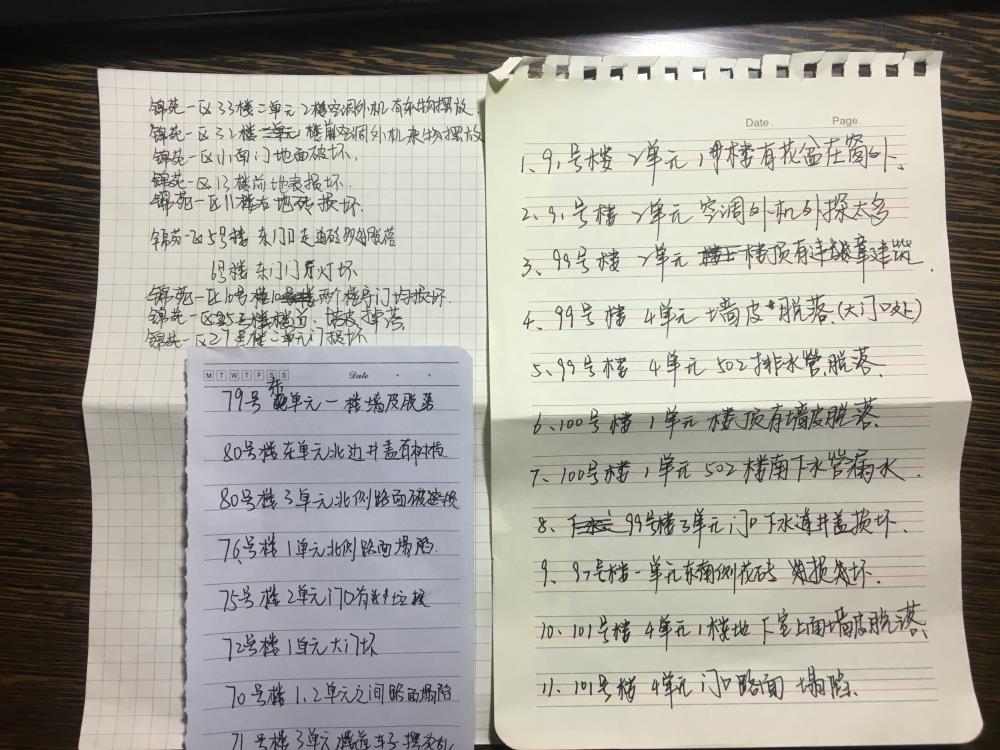 锦苑一区33楼二单元2楼空调外机有杂物摆放.
锦苑一区32楼 楼前空调外机杂物摆放
锦苑一区 南门地面破坏.
锦苑一区13楼前地表损坏.
锦苑一区11楼右地砖损坏.
锦苑一区5号楼 东门口走道砖 脱落
6号楼东门门厅灯坏
锦苑一区10号楼 两个楼导门均损坏.
锦苑一区25 楼前 墙皮掉落
锦苑一区27号楼二单元门损坏
M T W T F S S Date
79号 东单元一楼墙皮脱落
80号楼 单元北边井盖有树枝
80号楼3单元北侧路面破
76号楼1单元北侧路面塌陷.
75号楼2单元门口有 垃圾
72号楼1单元大门坏
70号楼1.2单元之间路面塌陷
71号楼3单元 车子摆放乱
Date. Page.
1、91号楼2单元1楼有花盆在窗外、
2、91号楼2单元空调外机外探太多
3、99号楼2单元 楼顶有违章建筑.
4、99号楼4单元墙皮脱落、(大门口处)
5、99号楼4单元502排水管脱落、
6、100号楼1单元楼顶有墙皮脱落、
7、100号楼1单元502楼南下水管漏水.
8、99号楼3单元门口下水道井盖损坏.
9、97号楼一单元东南侧花砖 损 坏.
10、101号楼4单元1楼地下室上面墙皮脱落、
11、101号楼4单元门口路面塌陷.